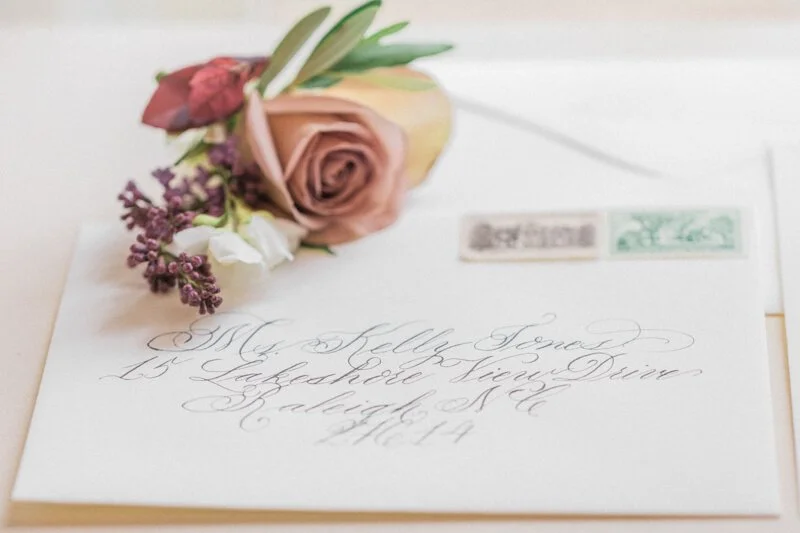 Ms. Kelly Jones
15 Lakeshore View Drive
Raleigh NC